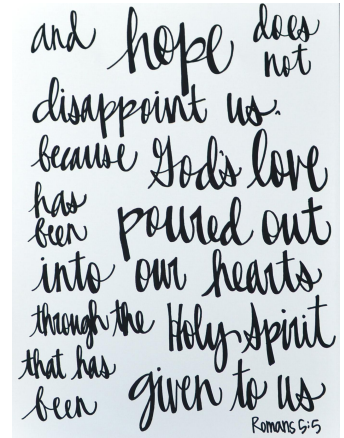 and hope does not
disappoint us.
because God's love
has been poured out
into our hearts
through the Holy Spirit
that has been given to us
Romans 5:5